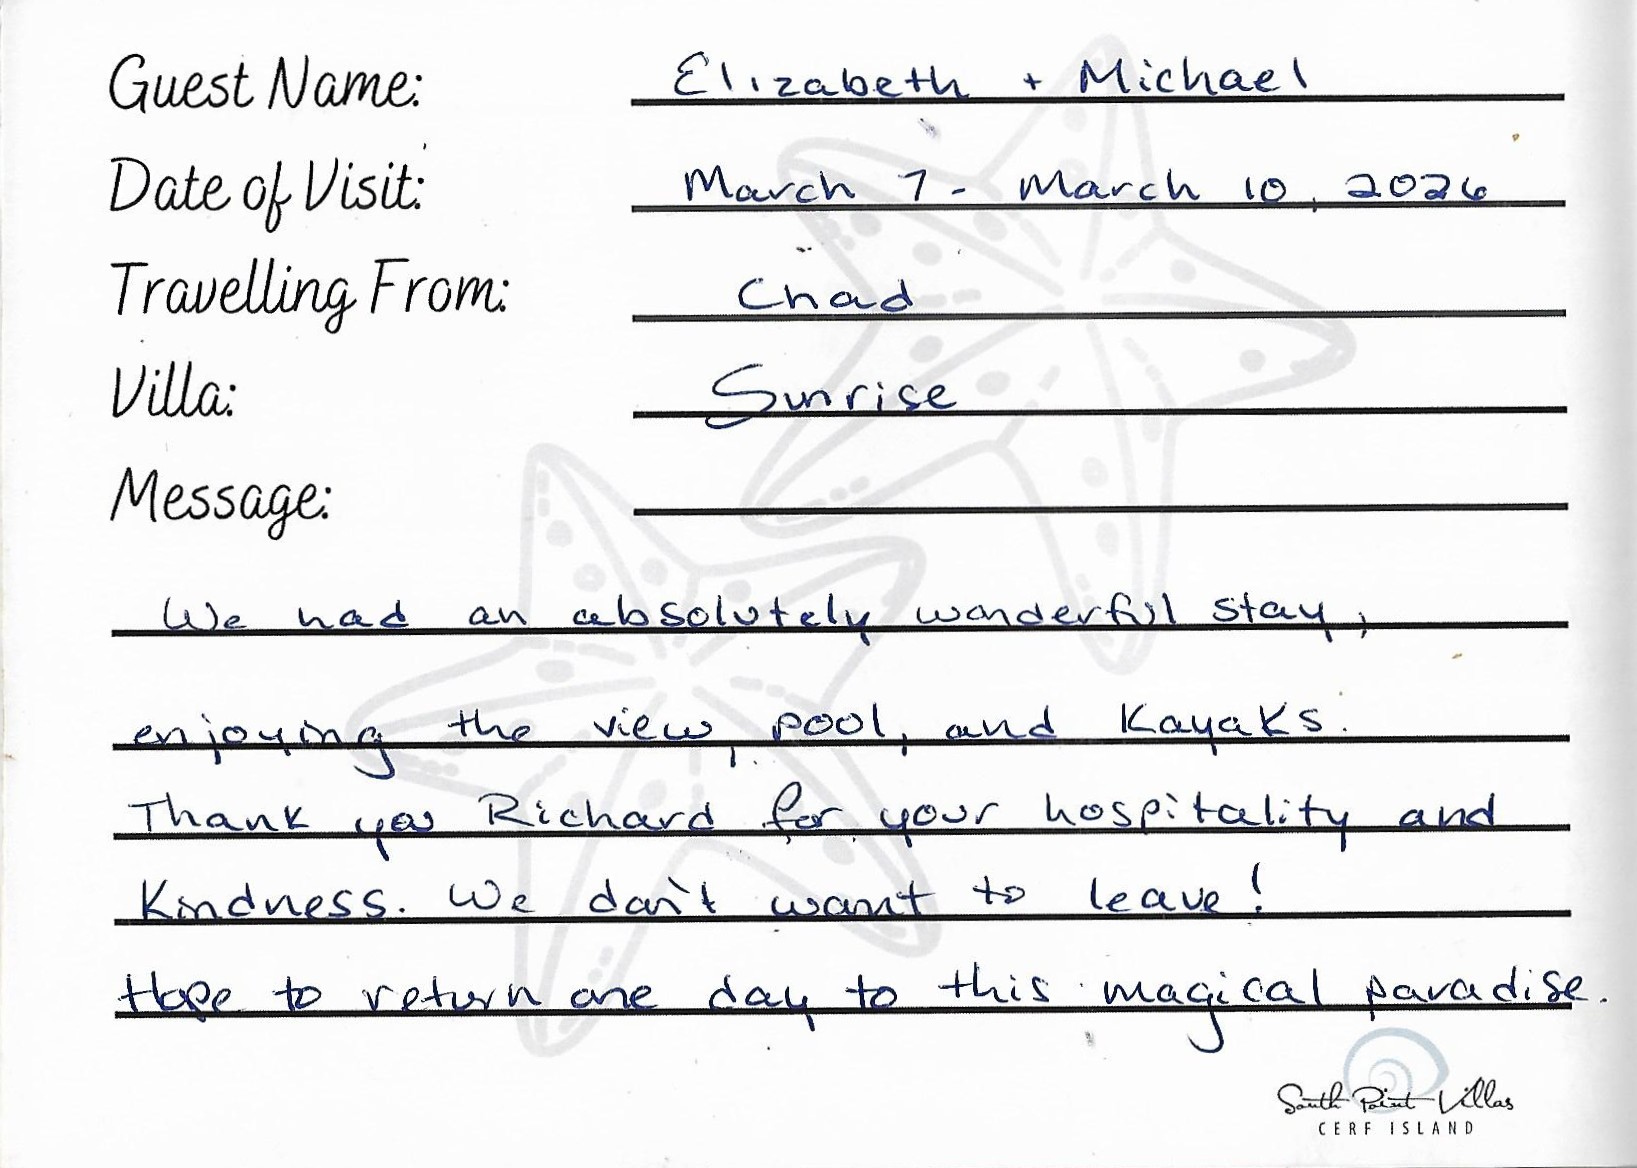 Guest Name: Elizabeth + Michael
Date of Visit: March 7 - March 10, 2026
Travelling From: Chad
Villa: Sunrise
Message:
We had an absolutely wonderful stay,
enjoying the view, pool, and Kayaks.
Thank you Richard for your hospitality and
Kindness. We don't want to leave!
Hope to return one day to this magical paradise.
South Point Villas
CERF ISLAND